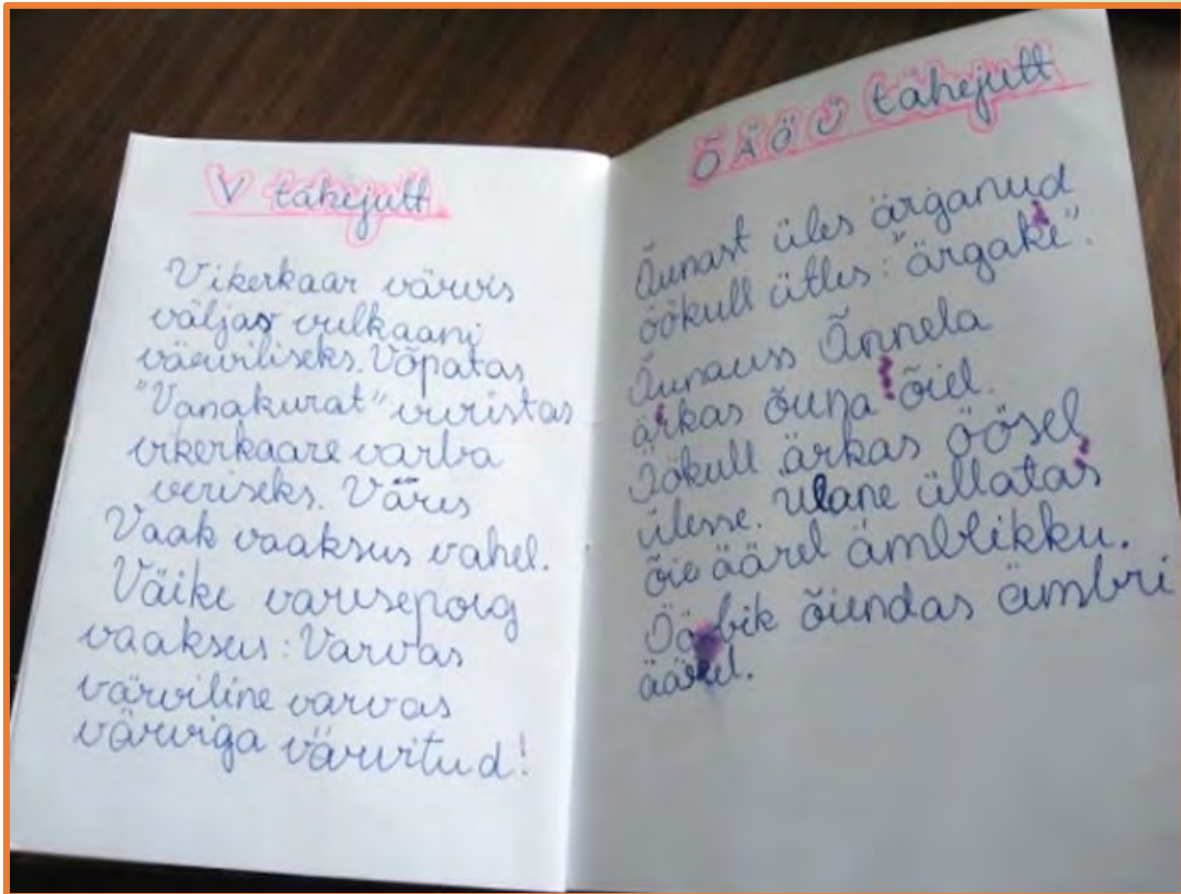 V tähejutt.
Vikerkaar värvis
väljas vulkaani
värviliseks. Võpatas
"Vanakurat" viristas
vikerkaare varba
veriseks. Väris
Vaak vaaksus vahel.
Väike varesepoig
vaaksus: Varvas
värviline varvas
värviga värvitud!
Õ Ä Ö Ü tähejutt
Õunast üles ärganud
öökull ütles: "ärgake".
Õunauss Õnnela
ärkas õuna õiel.
Öökull ärkas öösel
ülesse. Ülane üllatas
õie äärel ämblikku.
Ööbik õiendas ämbri
äärel.